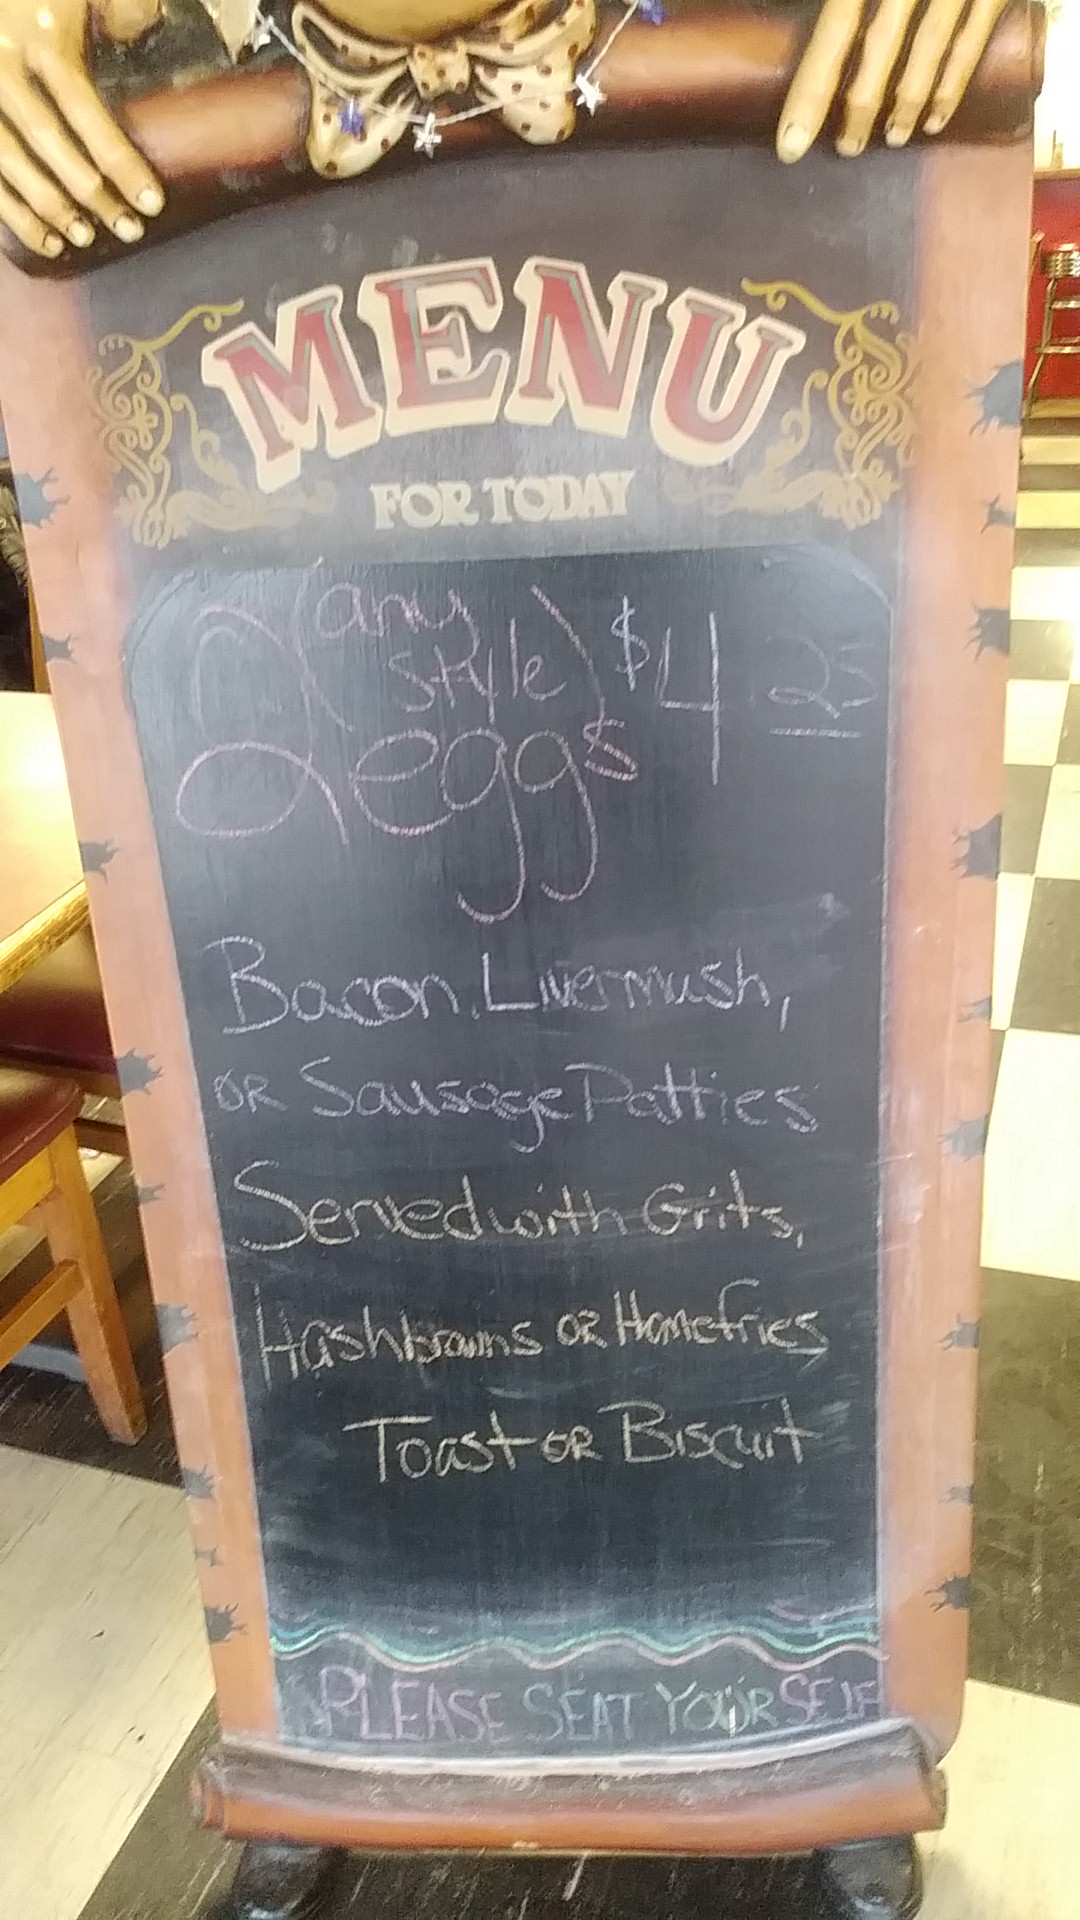 MENU
FOR TODAY
2 (any style) $4 25
eggs
Bacon, Livermush,
OR Sausage Patties
Served with Grits,
Hashbrowns OR Homefries
Toast OR Biscuit
PLEASE SEAT YOURSELF